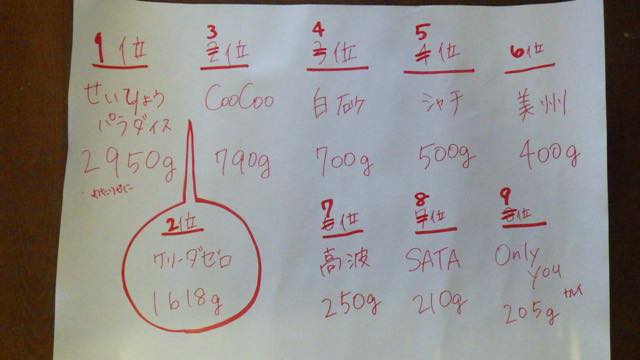 1位
せいりょう
パラダイス
2950g
2位
ケリーダゼロ
1618g
3位
CooCoo
790g
4位
白石ケ
700g
5位
シャチ
500g
6位
美州
400g
7位
高波
250g
8位
SATA
210g
9位
Only
you
205g